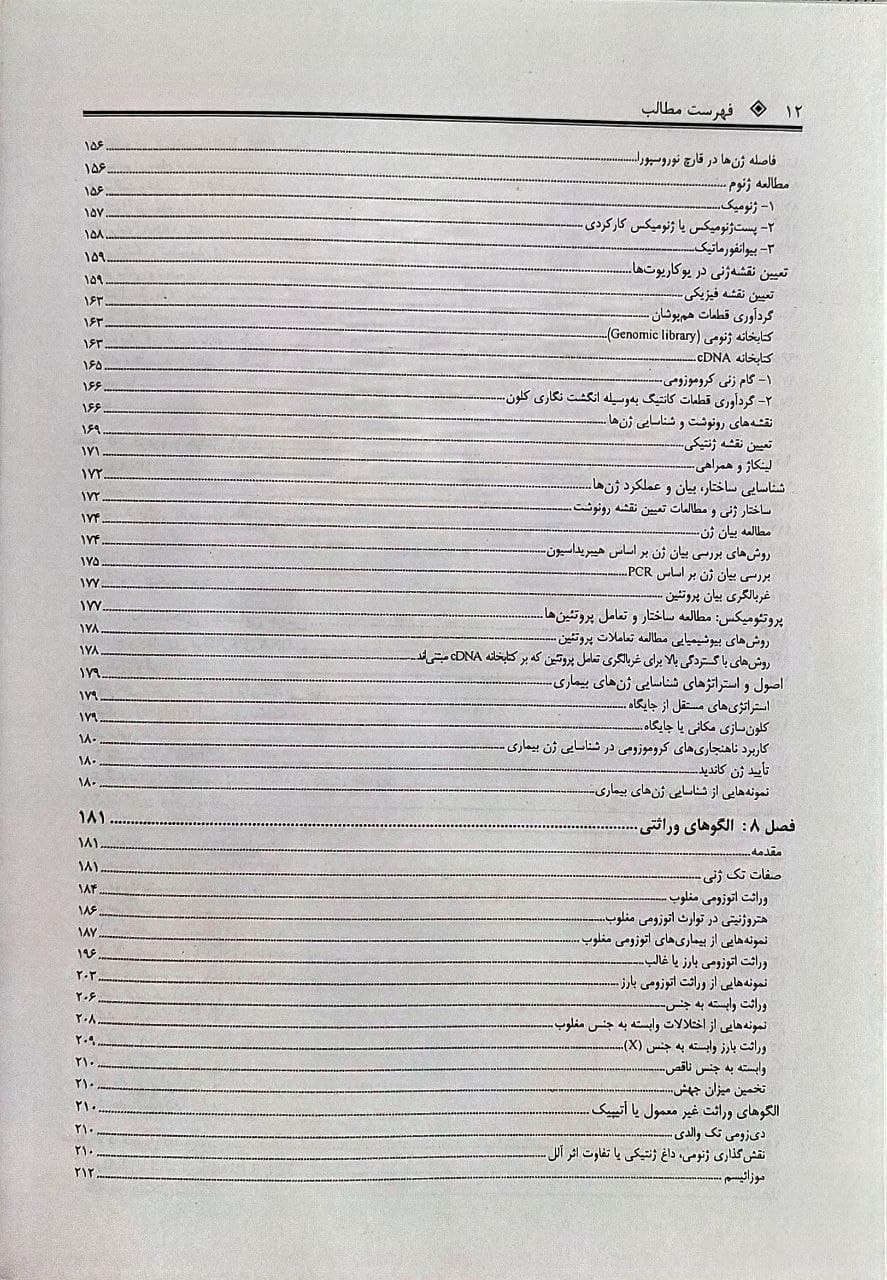 ۱۲ ◈ فهرست مطالب
فاصله ژن‌ها در قارچ نوروسپورا ۱۵۶
مطالعه ژنوم ۱۵۶
۱- ژنومیک ۱۵۶
۲- پست‌ژنومیکس یا ژنومیکس کارکردی ۱۵۷
۳- بیوانفورماتیک ۱۵۸
تعیین نقشه‌ژنی در یوکاریوت‌ها ۱۵۹
تعیین نقشه فیزیکی ۱۵۹
گردآوری قطعات هم‌پوشان ۱۶۳
کتابخانه ژنومی (Genomic library) ۱۶۳
کتابخانه cDNA ۱۶۳
۱- گام زنی کروموزومی ۱۶۵
۲- گردآوری قطعات کانتیگ به‌وسیله انگشت نگاری کلون ۱۶۶
نقشه‌های رونوشت و شناسایی ژن‌ها ۱۶۶
تعیین نقشه ژنتیکی ۱۶۹
لینکاژ و همراهی ۱۷۱
شناسایی ساختار، بیان و عملکرد ژن‌ها ۱۷۲
ساختار ژنی و مطالعات تعیین نقشه رونوشت ۱۷۲
مطالعه بیان ژن ۱۷۴
روش‌های بررسی بیان ژن بر اساس هیبریداسیون ۱۷۴
بررسی بیان ژن بر اساس PCR ۱۷۵
غربالگری بیان پروتئین ۱۷۷
پروتئومیکس: مطالعه ساختار و تعامل پروتئین‌ها ۱۷۷
روش‌های بیوشیمیایی مطالعه تعاملات پروتئین ۱۷۸
روش‌های با گستردگی بالا برای غربالگری تعامل پروتئین که بر کتابخانه cDNA مبتنی‌اند ۱۷۸
اصول و استراتژهای شناسایی ژن‌های بیماری ۱۷۹
استراتژی‌های مستقل از جایگاه ۱۷۹
کلون‌سازی مکانی یا جایگاه ۱۷۹
کاربرد ناهنجاری‌های کروموزومی در شناسایی ژن بیماری ۱۸۰
تأیید ژن کاندید ۱۸۰
نمونه‌هایی از شناسایی ژن‌های بیماری ۱۸۰
فصل ۸: الگوهای وراثتی ۱۸۱
مقدمه ۱۸۱
صفات تک ژنی ۱۸۱
وراثت اتوزومی مغلوب ۱۸۴
هتروژنیتی در توارث اتوزومی مغلوب ۱۸۶
نمونه‌هایی از بیماری‌های اتوزومی مغلوب ۱۸۷
وراثت اتوزومی بارز یا غالب ۱۹۶
نمونه‌هایی از وراثت اتوزومی بارز ۲۰۳
وراثت وابسته به جنس ۲۰۶
نمونه‌هایی از اختلالات وابسته به جنس مغلوب ۲۰۸
وراثت بارز وابسته به جنس (X) ۲۰۹
وابسته به جنس ناقص ۲۱۰
تخمین میزان جهش ۲۱۰
الگوهای وراثت غیر معمول یا آتیپیک ۲۱۰
دی‌زومی تک والدی ۲۱۰
نقش‌گذاری ژنومی، داغ ژنتیکی یا تفاوت اثر آلل ۲۱۰
موزائیسم ۲۱۲